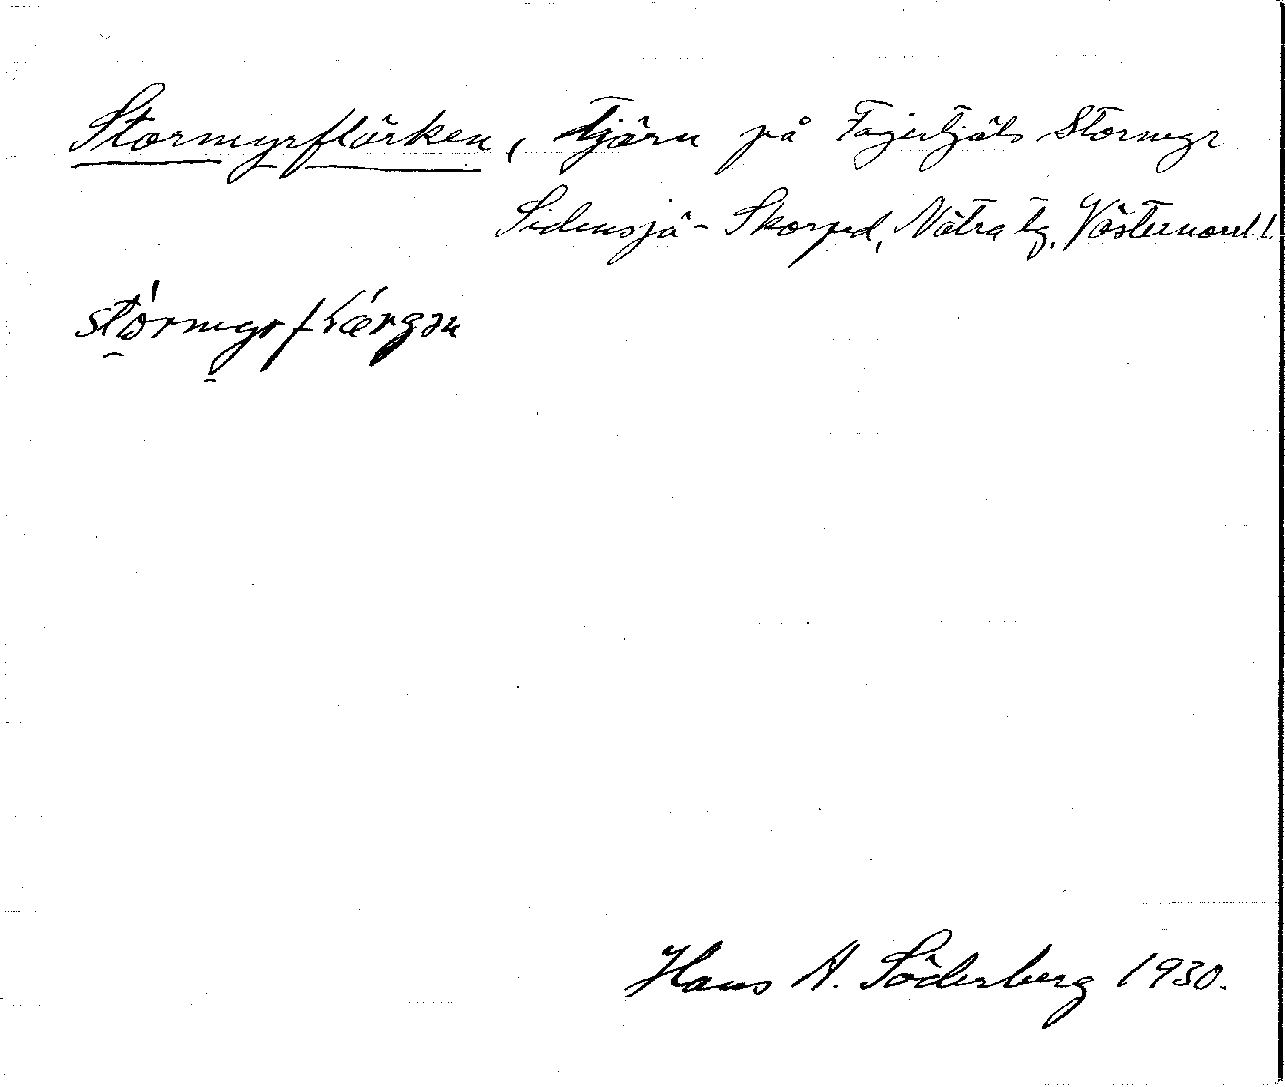 Stormyrflärken, tjärn på Fajerfjäls Stormyr
Sidensjö - Skorped, Nätra tg. Västernorrl l.
stórmyrfḷǽrgən
Hans A. Söderberg 1930.